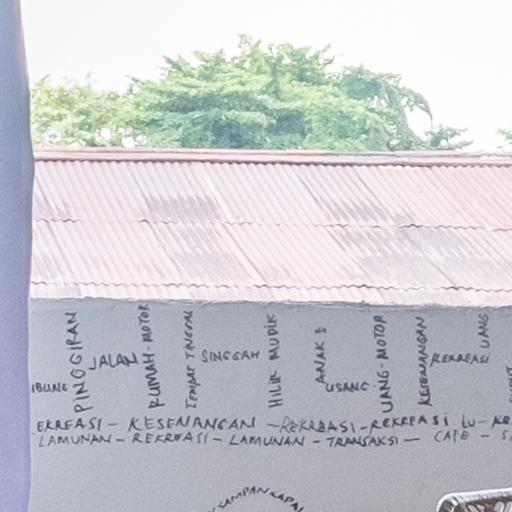 PINGGIRAN
JALAN
RUMAH - MOTOR
TEMPAT TINGGAL
SINGGAH
HILIR MUDIK
ANAK 2
USANG
UANG - MOTOR
KESENANGAN
REKREASI
UANG
EKREASI - KESENANGAN - REKREASI - REKREASI
LAMUNAN - REKREASI - LAMUNAN - TRANSAKSI - CAFE -
SAMPAN KAPAL